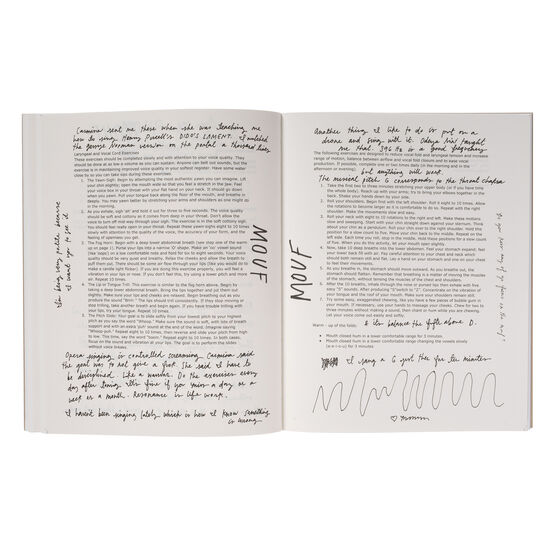 Casmina sent me these when she was teaching me
how to sing Henry Purcell's DIDO'S LAMENT. I watched
the Jessye Norman version on the portal a thousand times.
Laryngeal and Vocal Cord Exercises
These exercises should be completed slowly and with attention to your voice quality. They
should be done at as low a volume as you can sustain. Anyone can belt out sounds, but the
exercise is in maintaining improved voice quality in your softest register. Have some water
close by so you can take sips during these exercises!
1. The Yawn-Sigh: Begin by attempting the most authentic yawn you can imagine. Lift
your chin slightly; open the mouth wide so that you feel a stretch in the jaw. Feel
your voice box in your throat with your flat hand on your neck. It should go down
when you yawn. Pull your tongue back along the floor of the mouth, and breathe in
deeply. You may yawn better by stretching your arms and shoulders as one might do
in the morning.
2. As you exhale, sigh 'ah' and hold it out for three to five seconds. The voice quality
should be soft and cottony as it comes from deep in your throat. Don't allow the
voice to turn off mid way through your sigh. The exercise is in the soft cottony sigh.
You should feel nasty open in your throat. Repeat these yawn-sighs eight to 10 times
slowly with attention to the quality of the voice, the accuracy of your form, and the
feeling of openness you get.
3. The Fog Horn: Begin with a deep lower abdominal breath (see step one of the warm
up on page 1). Purse your lips into a narrow 'O' shape. Make an 'oo' vowel sound
(like 'oops') on a low comfortable note and hold for six to eight seconds. Your voice
quality should be very pure and breathy. Relax the cheeks and allow the breath to
puff them out. There should be some air flow through your lips (like you would do to
make a candle light flicker). If you are doing this exercise properly, you will feel a
vibration in your lips or nose. If you don't feel this, try using a lower pitch and more
air. Repeat 10 times.
4. The Lip or Tongue Trill: This exercise is similar to the fog horn above. Begin by
taking a deep lower abdominal breath. Bring the lips together and jut them out
slightly. Make sure your lips and cheeks are relaxed. Begin breathing out as you
produce the sound "Brrrr." The lips should trill consistently. If they stop moving or
stop trilling, take another breath and begin again. If you have trouble trilling with
your lips, try your tongue. Repeat 10 times.
5. The Pitch Slide: Your goal is to slide softly from your lowest pitch to your highest
pitch as you say the word "Whoop." Make sure the sound is soft, with lots of breath
support and with an extra 'puh' sound at the end of the word. Imagine saying
"Whoop-puh." Repeat eight to 10 times, then reverse and slide your pitch from high
to low. This time, say the word "boom." Repeat eight to 10 times. In both cases,
focus on the sound and vibration at your lips. The goal is to perform the slides
without voice breaks.
Opera singing is controlled screaming. Casmina said
the goal was to not give a fuck. She said I have to
be disciplined. Like a warrior. Do the exercises every
day after tuning. It's fine if you miss a day or a
week or a month. Resonance is life work.
I haven't been singing lately which is how I know something
is wrong.
I want you to see it
MOUF
Another thing I like to do is put on a
drone and sing with it. Odeya Nini taught
me that. 396 Hz is a good frequency
The following exercises are designed to reduce vocal fold and laryngeal tension and increase
range of motion, balance between airflow and vocal fold closure, and to ease vocal
production. If possible, complete one or two times daily (in the morning and in the
afternoon or evening).
but anything will work.
The musical pitch G corresponds to the throat chakra
1. Take the first two to three minutes stretching your upper body (or if you have time
the whole body). Reach up with your arms; try to bring your elbows together in the
back. Shake your hands down by your side.
2. Roll your shoulders. Begin first with the left shoulder. Roll it eight to 10 times. Allow
the rotations to become larger as it is comfortable to do so. Repeat with the right
shoulder. Make the movements slow and easy.
3. Roll your neck with eight to 10 rotations to the right and left. Make these motions
slow and sweeping. Start with your chin straight down against your sternum. Think
about your chin as a pendulum. Roll your chin over to the right shoulder. Hold the
position for a slow count to five. Move your chin back to the middle. Repeat on the
left side. Each time you roll, stop in the middle. Hold these positions for a slow count
of five. When you do this activity, let your mouth open slightly.
4. Now, take 10 deep breaths into the lower abdomen. Feel your stomach expand; feel
your lower back fill with air. Pay careful attention to your chest and neck which
should both remain still and flat. Lay a hand on your stomach and one on your chest
to feel their movements.
5. As you breathe in, the stomach should move outward. As you breathe out, the
stomach should flatten. Remember that breathing is a matter of moving the muscles
of the stomach, without tensing the muscles of the chest and shoulders.
6. After the 10 breaths, inhale through the nose or pursed lips then exhale with five
easy "S" sounds. After producing "S" switch to "Z". Concentrate on the vibration of
your tongue and the roof of your mouth. Make sure your shoulders remain still.
7. Try some easy, exaggerated chewing. Say you have a few pieces of bubble gum in
your mouth. If necessary, use your hands to massage your cheeks. Chew for two to
three minutes without making a sound, then chant or hum while you are chewing.
Let your voice come out easily and softly.
Warm - up of the folds:
• Mouth closed hum in a lower comfortable range for 3 minutes.
• Mouth closed hum in a lower comfortable range changing the vowels slowly
(a-e-i-o-u) for 3 minutes
MOUF
I sang a G just then for ten minutes